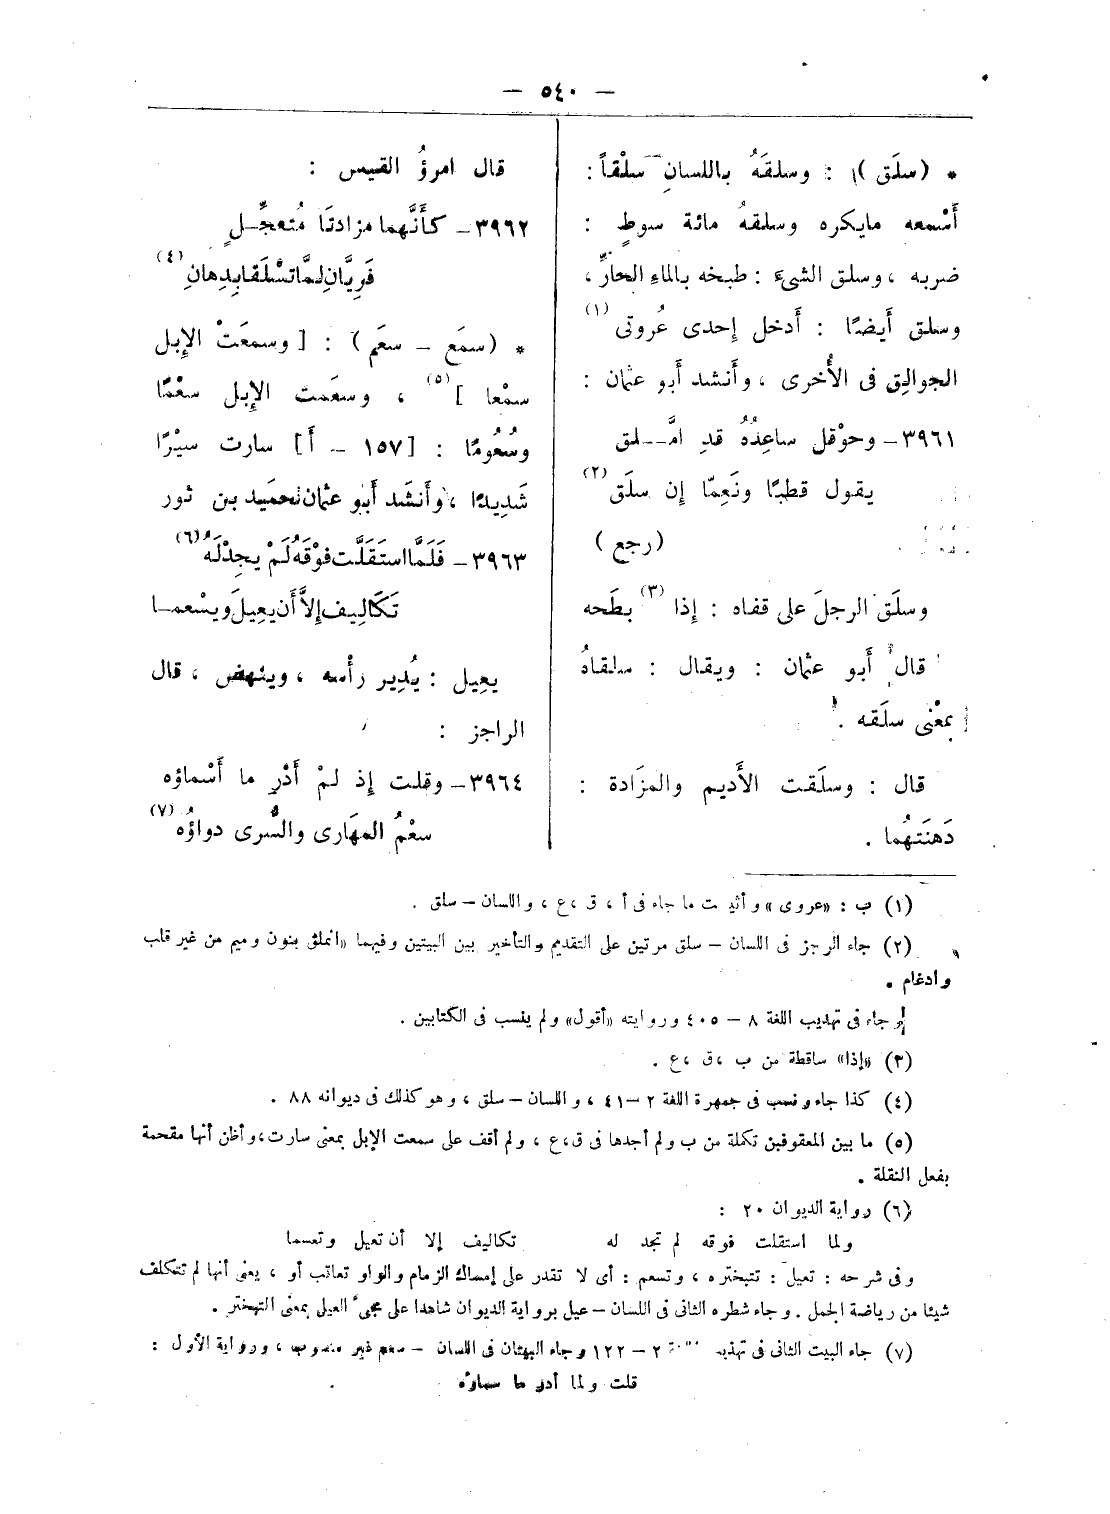 — ٥٤٠ —
* (سلَق) : وسلقَهُ باللسانِ سلْقاً :
أَسْمعه مايكره وسلقهُ مائة سوطٍ :
ضربه ، وسلق الشيءَ : طبخه بالماءِ الحارِّ ،
وسلق أَيضًا : أَدخل إِحدى عُروتى (١)
الجوالِق فى الأُخرى ، وأَنشد أَبو عثمان :
٣٩٦١ – وحوْقل ساعِدُهُ قدِ امَّـلق
يقول قطبًا ونَعِمّا إِن سلَق (٢)
(رجع)
وسلَق الرجلَ على قفاه : إِذا (٣) بطَحه
قال أَبو عثمان : ويقال : سلقاهُ
بمعْنى سلَقه .
قال : وسلَقت الأَديم والمزَادة :
دَهَنَتهُما .
قال امرؤُ القيس :
٣٩٦٢ – كأَنَّهما مزادتَا مُتعجِّـلٍ
فَرِيَّانِ لمَّا تسْلَقا بِدِهانِ (٤)
* (سمَع – سعَم) : [ وسمعَتْ الإِبل
سمْعا ] (٥) ، وسعَمت الإِبل سعْمًا
وسُعُومًا : [١٥٧ – أَ] سارت سيْرًا
شَدِيدًا ، وأَنشَد أَبو عثمان لحمَيد بن ثور
٣٩٦٣ – فَلَمَّا استَقَلَّت فوْقَهُ لَمْ يجِدْلَهُ (٦)
تَكَالِيف إِلاَّ أَن يعِيلَ ويسْعمـا
يعِيل : يُدِير رأْسه ، وينْهض ، قال
الراجز :
٣٩٦٤ – وقلت إِذ لمْ أَدْرِ ما أَسْماؤه
سعْمُ المهَارى والسُّرى دواؤُه (٧)
(١) ب : «عروى» وأثبت ما جاء فى أ ، ق ، ع ، واللسان – سلق .
(٢) جاء الرجز فى اللسان – سلق مرتين على التقديم والتأخير بين البيتين وفيهما «انملق بنون وميم من غير قلب
وادغام .
وجاء فى تهذيب اللغة ٨ – ٤٠٥ وروايته «أقول» ولم ينسب فى الكتابين .
(٣) «إذا» ساقطة من ب ، ق ، ع .
(٤) كذا جاء ونسب فى جمهرة اللغة ٢ – ٤١ ، واللسان – سلق ، وهو كذلك فى ديوانه ٨٨ .
(٥) ما بين المعقوفين تكملة من ب ولم أجدها فى ق، ع ، ولم أقف على سمعت الإبل بمعنى سارت، وأظن أنها مقحمة
بفعل النقلة .
(٦) رواية الديوان ٢٠ :
ولما استقلت فوقه لم تجد له تكاليف إلا أن تعيل وتعسما
وفى شرحه : تعيل : تتبختره ، وتسعم : أى لا تقدر على إمساك الزمام والواو تعاتب أو ، يعنى أنها لم تتكلف
شيئا من رياضة الجمل . وجاء شطره الثانى فى اللسان – عيل برواية الديوان شاهدا على مجىء العيل بمعنى التبختر .
(٧) جاء البيت الثانى فى تهذيب ٢ – ١٢٢ وجاء البيتان فى اللسان – سعم غير منسوب ، ورواية الأول :
قلت ولما أدر ما سماؤه